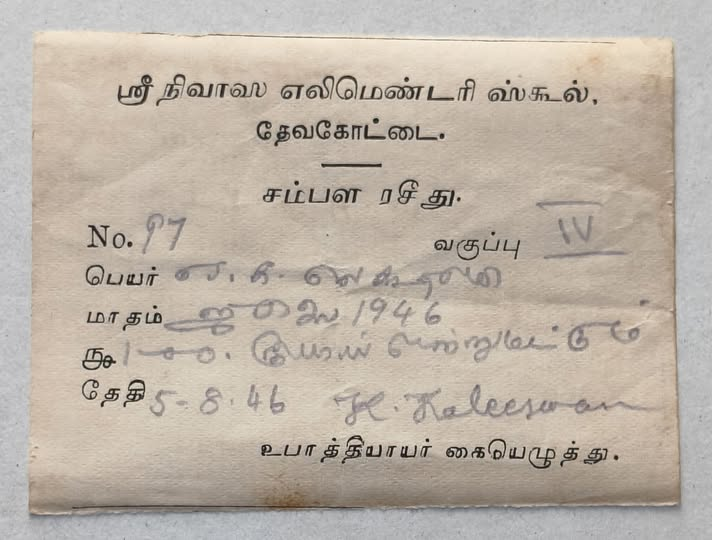 ஸ்ரீ நிவாஸ எலிமெண்டரி ஸ்கூல்,
தேவகோட்டை.
சம்பள ரசீது.
No. 97 வகுப்பு IV
பெயர்
மாதம் ஜூலை 1946
ரூ 1-0-0. ரூபாய் ஒன்றுமட்டும்
தேதி 5-8-46 K. Kaleeswaran
உபாத்தியாயர் கையெழுத்து.